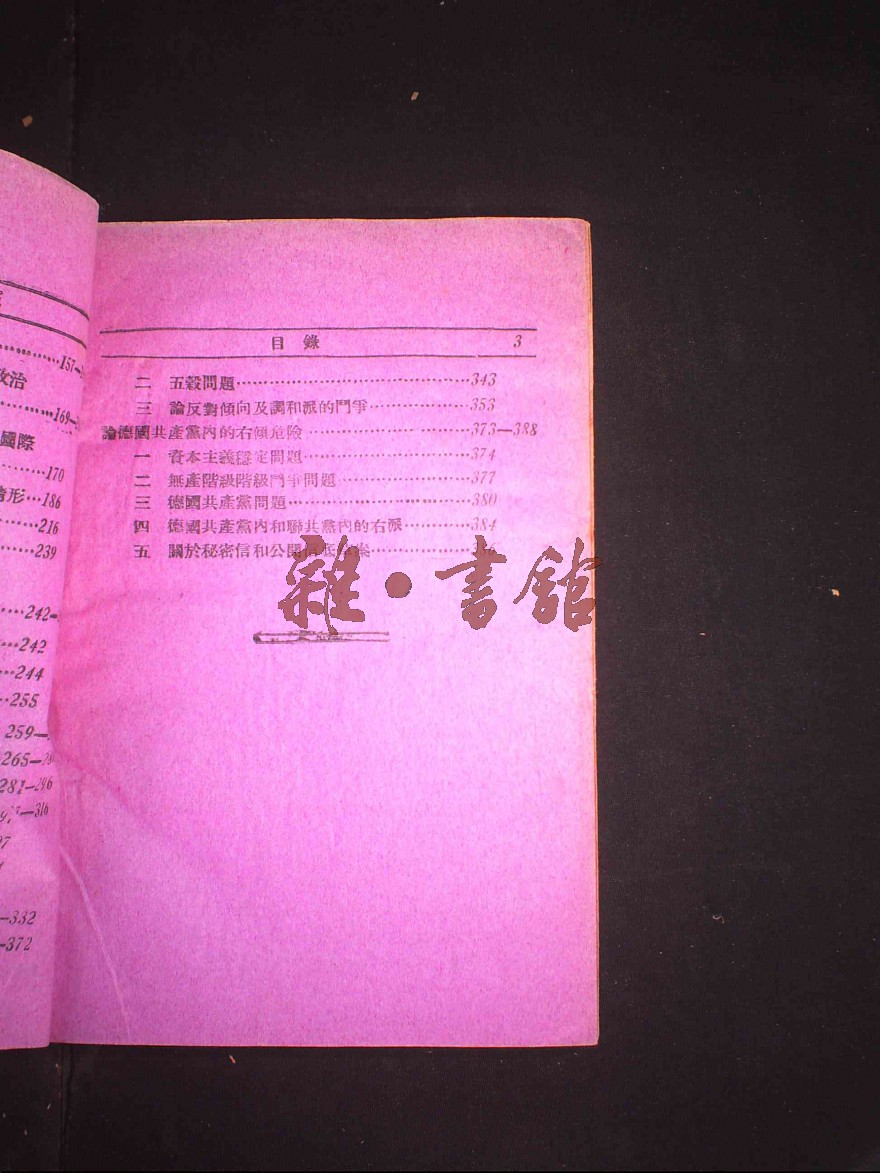 157—
政治
169—
國際
170
情形…186
216
239
242—
242
244
255
259—
265—
281—296
—316
97
—332
—372
目錄 3
二 五穀問題…343
三 論反對傾向及調和派的鬥爭…353
論德國共產黨內的右傾危險…373—388
一 資本主義穩定問題…374
二 無產階級階級鬥爭問題…377
三 德國共產黨問題…380
四 德國共產黨內和聯共黨內的右派…384
五 關於秘密信和公開信底草案…386
雜·書館